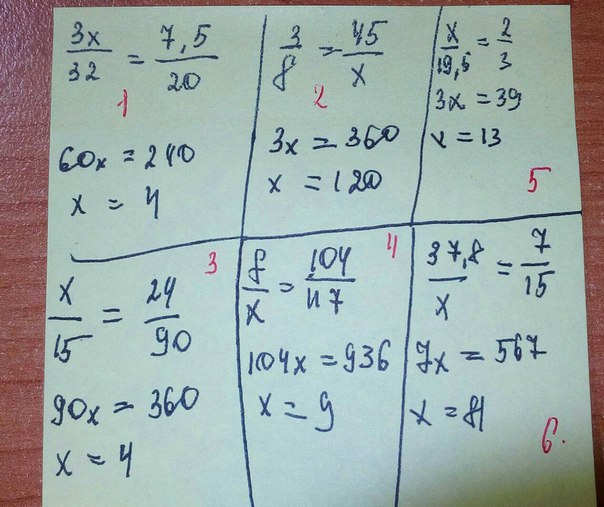 3x/32 = 7,5/20
1
60x = 240
x = 4
3/8 = 45/x
2
3x = 360
x = 120
x/19,5 = 2/3
3x = 39
x = 13
5
3
x/15 = 24/90
90x = 360
x = 4
4
8/x = 104/117
104x = 936
x = 9
37,8/x = 7/15
7x = 567
x = 81
6.